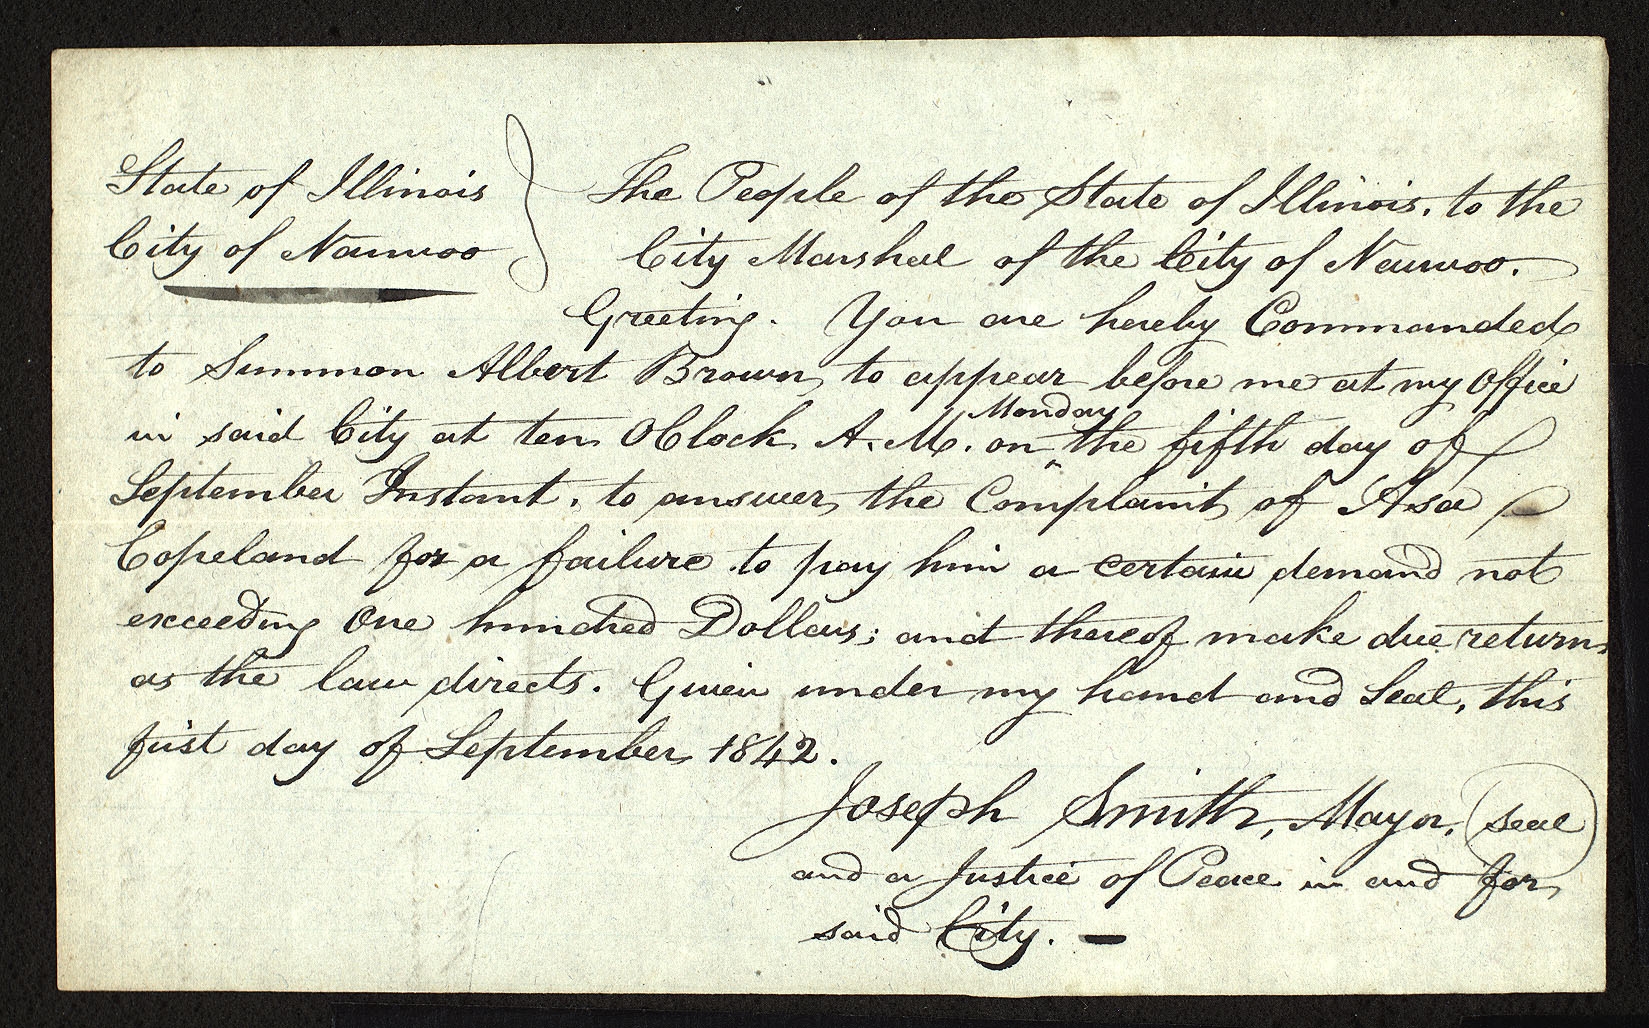 State of Illinois } The People of the State of Illinois, to the
City of Nauvoo } City Marshal of the City of Nauvoo.
Greeting. You are hereby Commanded
to Summon Albert Brown, to appear before me at my Office
in said City at ten OClock, A. M. on ^Monday the fifth day of
September Instant, to answer the Complaint of Asa
Copeland for a failure to pay him a certain demand not
exceeding One hundred Dollars; and thereof make due return
as the law directs. Given under my hand and Seal, this
first day of September 1842.
Joseph Smith, Mayor, (seal)
and a Justice of Peace in and for
said City. —